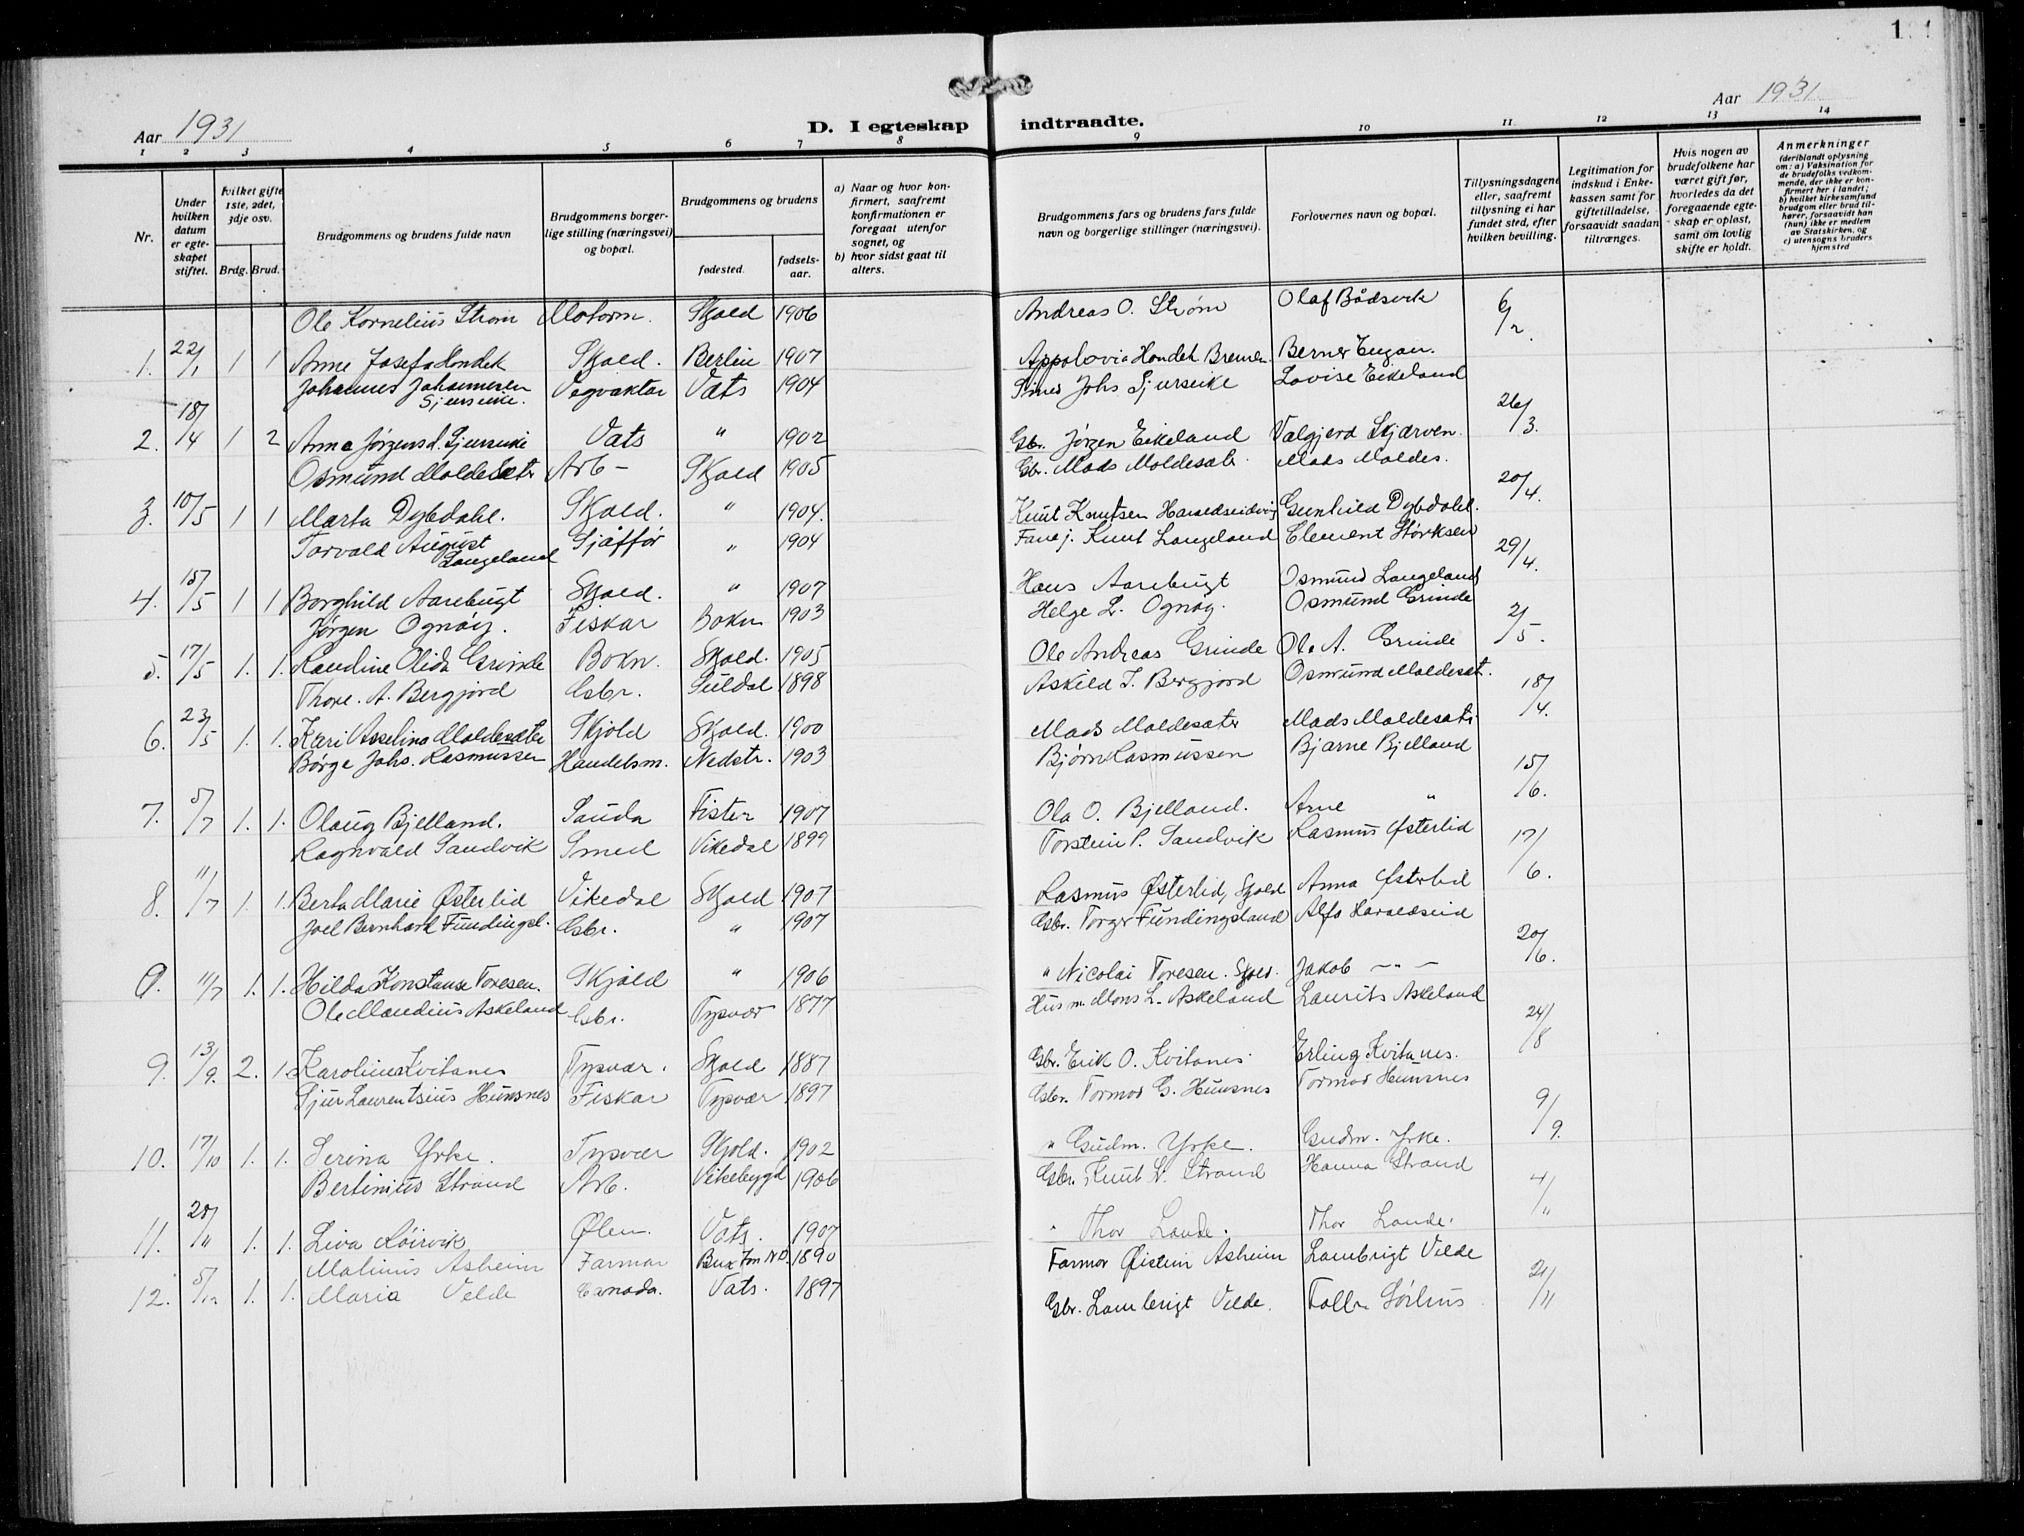 Aar 1931
D. I egteskap indtraadte.
Aar 1931
1 2 3 4 5 6 7 8 9 10 11 12 13 14
Nr.
Under hvilken datum er egteskapet stiftet.
hvilket gifte 1ste, 2det, 3dje osv.
Brdg. Brud.
Brudgommens og brudens fulde navn
Brudgommens borgerlige stilling (næringsvei) og bopæl.
Brudgommens og brudens
fødested. fødselsaar.
a) Naar og hvor konfirmert, saafremt konfirmationen er foregaat utenfor sognet, og
b) hvor sidst gaat til alters.
Brudgommens fars og brudens fars fulde navn og borgerlige stillinger (næringsvei).
Forlovernes navn og bopæl.
Tillysningsdagene eller, saafremt tillysning ei har fundet sted, efter hvilken bevilling.
Legitimation for indskud i Enkekassen samt for giftetilladelse, forsaavidt saadan tiltrænges.
Hvis nogen av brudefolkene har været gift før, hvorledes da det foregaaende egteskap er opløst, samt om lovlig skifte er holdt.
Anmerkninger (deriblandt oplysning om: a) Vaksination for de brudefolks vedkommende, der ikke er konfirmert her i landet; b) hvilket kirkesamfund brudgom eller brud tilhører, forsaavidt han (hun) ikke er medlem av Statskirken, og c) utensogns bruders hjemsted
Ole Kornelius Strøm Motorm. Skjold 1906 Andreas O. Strøm Olaf Bådsvik 6/2
1. 22/1 1 1 Anne Josefa Hondek Skjold. Berlin 1907 Appolovia Hondek Bremen. Berner Eugan.
Johannes Johannesen Sjurseike. Vegvaktar Vats 1904 Smed Johs Sjurseike Lovise Eikeland 26/3.
2. 18/4 1 2 Anna Jørgensd. Sjurseike Vats " 1902 Gbr. Jørgen Eikeland Valgjerd Skjærven.
Osmund Moldesæter Arb - Skjold 1905 Gbr. Mads Moldesæter. Mads Moldes. 20/4.
3. 10/5 1 1 Marta Dybdahl. Skjold. " 1904. Knut Knutsen Haraldseidvåg Gunhild Dybdahl.
Torvald August Langeland Sjåffør " 1904 Knut Langeland Clement Størksen 29/4.
4. 15/5 1 1 Borghild Aarebugt Skjold. " 1907 Hans Aarebugt Osmund Langeland
Jørgen Ognøy. Fiskar Bokn 1903 Helge L. Ognøy. Osmund Grinde 2/5.
5. 17/5 1. 1. Raudine Olida Grinde Bokn. Skjold. 1905 Ole Andreas Grinde Ole A. Grinde
Thore. A. Bergjord Gbr. Suldal 1898 Askild T. Bergjord Osmund Moldesæt. 18/4.
6. 23/5 1. 1. Kari Asselina Moldesæter Skjold Skjold. 1900 Mads Moldesæter Mads Moldesæter
Børge Johs. Rasmussen Handelsm. Nedstr. 1903 Bjørn Rasmussen Bjarne Bjelland 15/6.
7. 5/7 1. 1. Olaug Bjelland. Sauda Fister 1907 Ola O. Bjelland. Arne "
Ragnvald Sandvik Smed Vikedal 1899 Torstein P. Sandvik Rasmus Østerlid 17/6.
8. 11/7 1 1. Berta Marie Østerlid Vikedal Skjold 1907 Rasmus Østerlid, Skjold Anna Østerlid
Joel Bernhard Fundingsl. Gbr. " 1907 Gbr. Torger Fundingsland Alfo Haraldseid 20/6.
9. 11/7 1. 1. Hilda Konstanse Toresen. Skjold " 1906 " Nicolai Toresen. Skjold. Jakob - " -
Ole Mandius Askeland Gbr. Tysvær 1877 Husm. Mons L. Askeland Laurits Askeland 24/8
9. 13/9. 2. 1. Karoline Kvitanes Tysvær. Skjold 1887 Gbr. Erik O. Kvitanes Erling Kvitanes.
Sjur Laurentsius Hunsnes Fiskar Tysvær 1897 Gbr. Tormod G. Hunsnes Tormod Hunsnes 9/9.
10. 17/10 1. 1. Serina Yrke. Tysvær Skjold. 1902 " Gudm. Yrke. Gudm. Yrke.
Bertinius Strand Arb. Vikebygd 1906 Gbr. Knut N. Strand Hanna Strand 4/11
11. 28/11 1. 1. Liva Røirvik Ølen. Vats. 1907 " Thor Lande. Thor Lande.
Malinus Asheim Farmar 1890 Farmor Øistein Asheim Lambrigt Velde 21/11
12. 5/12 1. 1. Maria Velde Canada. Vats. 1897 Gbr. Lambrigt Velde. Sørhus